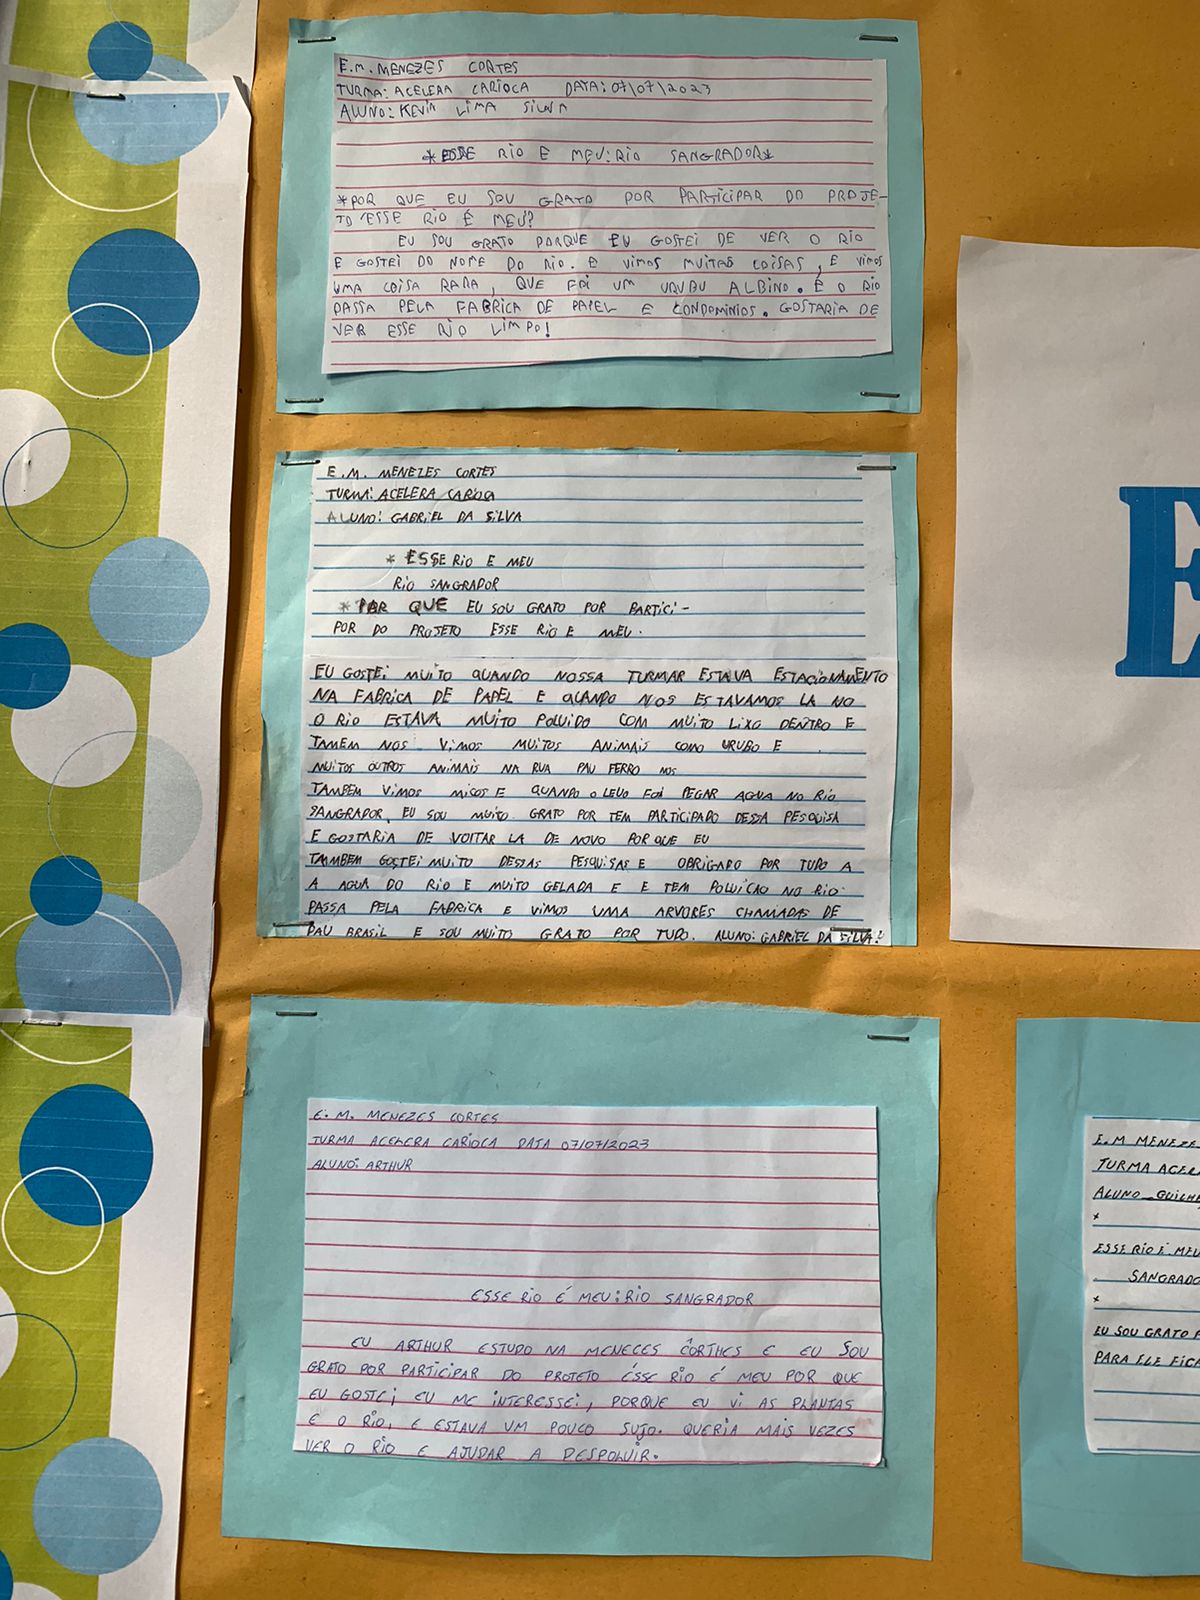 E.M. MENEZES CORTES
TURMA: ACELERA CARIOCA DATA: 07/07/2023
ALUNO: KEVIN LIMA SILVA
*ESSE RIO E MEU: RIO SANGRADOR*
*POR QUE EU SOU GRATO POR PARTICIPAR DO PROJE-
TO ESSE RIO É MEU?
EU SOU GRATO PORQUE EU GOSTEI DE VER O RIO
E GOSTEI DO NOME DO RIO. E VIMOS MUITAS COISAS, E VIMOS
UMA COISA RARA, QUE FOI UM URUBU ALBINO. E O RIO
PASSA PELA FABRICA DE PAPEL E CONDOMINIOS. GOSTARIA DE
VER ESSE RIO LIMPO!
E.M. MENEZES CORTES
TURMA: ACELERA CARIOCA
ALUNO: GABRIEL DA SILVA
* ESSE RIO E MEU
RIO SANGRADOR
* POR QUE EU SOU GRATO POR PARTICI-
POR DO PROJETO ESSE RIO E MEU.
EU GOSTEI MUITO QUANDO NOSSA TURMAR ESTAVA ESTACIONAMENTO
NA FABRICA DE PAPEL E QUANDO NOS ESTAVAMOS LA NO
O RIO ESTAVA MUITO POLUIDO COM MUITO LIXO DENTRO E
TAMEM NOS VIMOS MUITOS ANIMAIS COMO URUBO E
MUITOS OUTROS ANIMAIS NA RUA PAU FERRO NOS
TAMBEM VIMOS MICOS E QUANDO O LEVO FOI PEGAR AGUA NO RIO
SANGRADOR, EU SOU MUITO GRATO POR TEM PARTICIPADO DESSA PESQUISA
E GOSTARIA DE VOLTAR LA DE NOVO POR QUE EU
TAMBEM GOSTEI MUITO DESSAS PESQUISAS E OBRIGADO POR TUDO A
A AGUA DO RIO E MUITO GELADA E E TEM POLUICAO NO RIO
PASSA PELA FABRICA E VIMOS UMA ARVORES CHAMADAS DE
PAU BRASIL E SOU MUITO GRATO POR TUDO. ALUNO: GABRIEL DA SILVA!
E
E. M. MENEZES CORTES
TURMA ACELERA CARIOCA DATA 07/07/2023
ALUNO: ARTHUR
ESSE RIO É MEU: RIO SANGRADOR
EU ARTHUR ESTUDO NA MENECES CÔRTHES E EU SOU
GRATO POR PARTICIPAR DO PROTETO ÉSSE RIO É MEU POR QUE
EU GOSTEI EU ME INTERESSEI, PORQUE EU VI AS PLANTAS
E O RIO, E ESTAVA UM POUCO SUJO. QUERIA MAIS VEZES
VER O RIO E AJUDAR A DESPOLUIR.
E.M MENEZE
TURMA ACER
ALUNO GUILHE
*
ESSE RIO É MEU
SANGRADO
*
EU SOU GRATO P
PARA ELE FICA